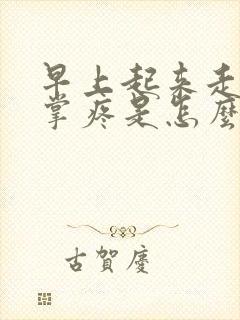 早上起来走
掌疼是怎麽
古賀慶